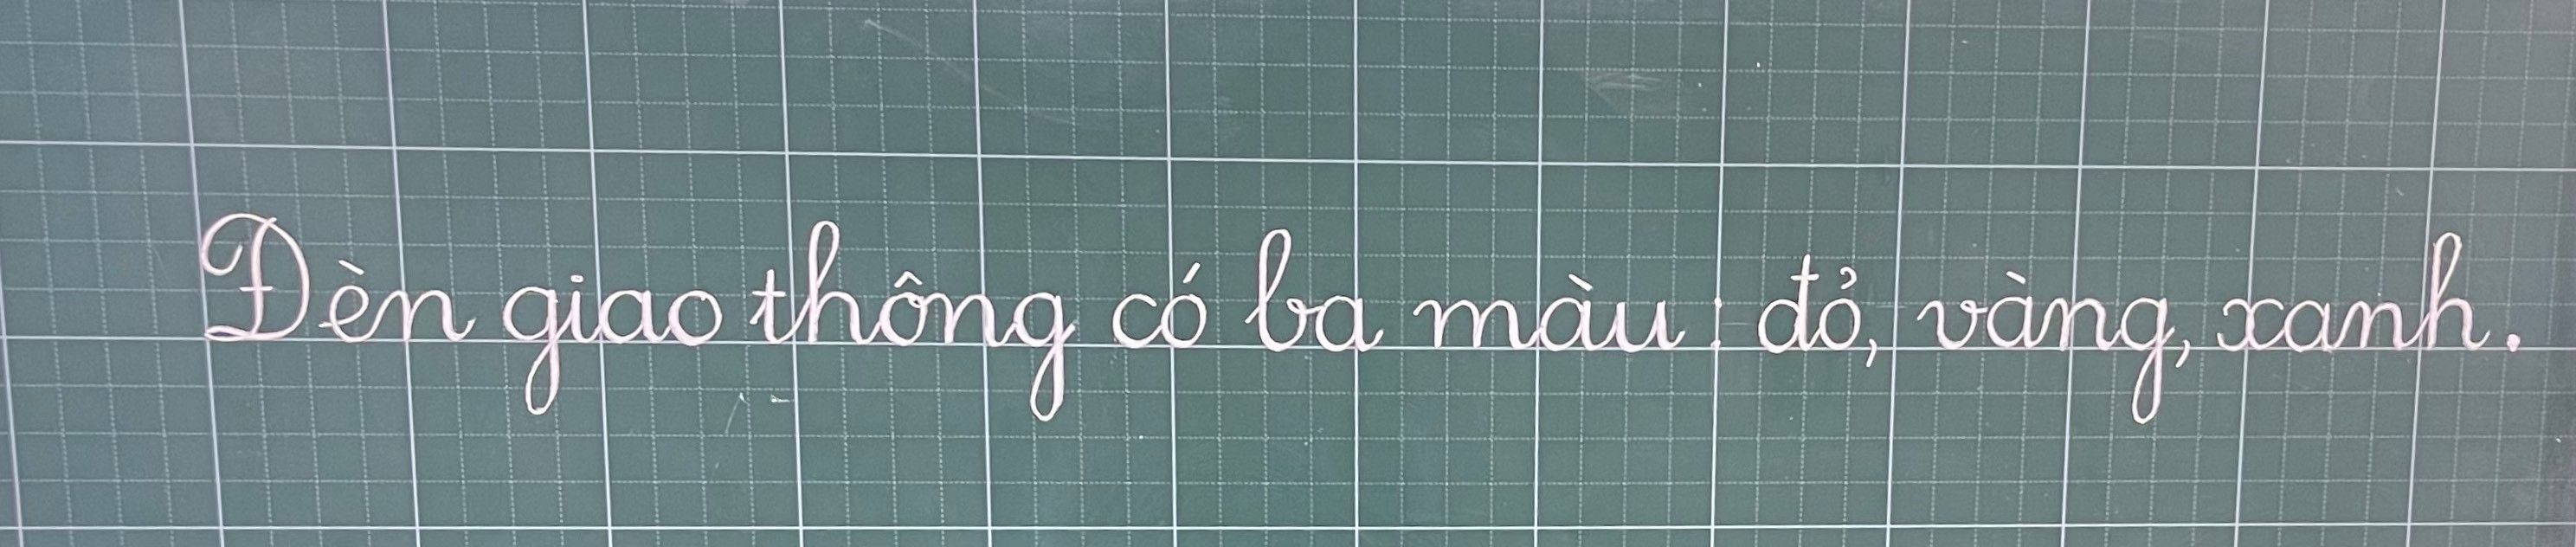 Đèn giao thông có ba màu: đỏ, vàng, xanh.